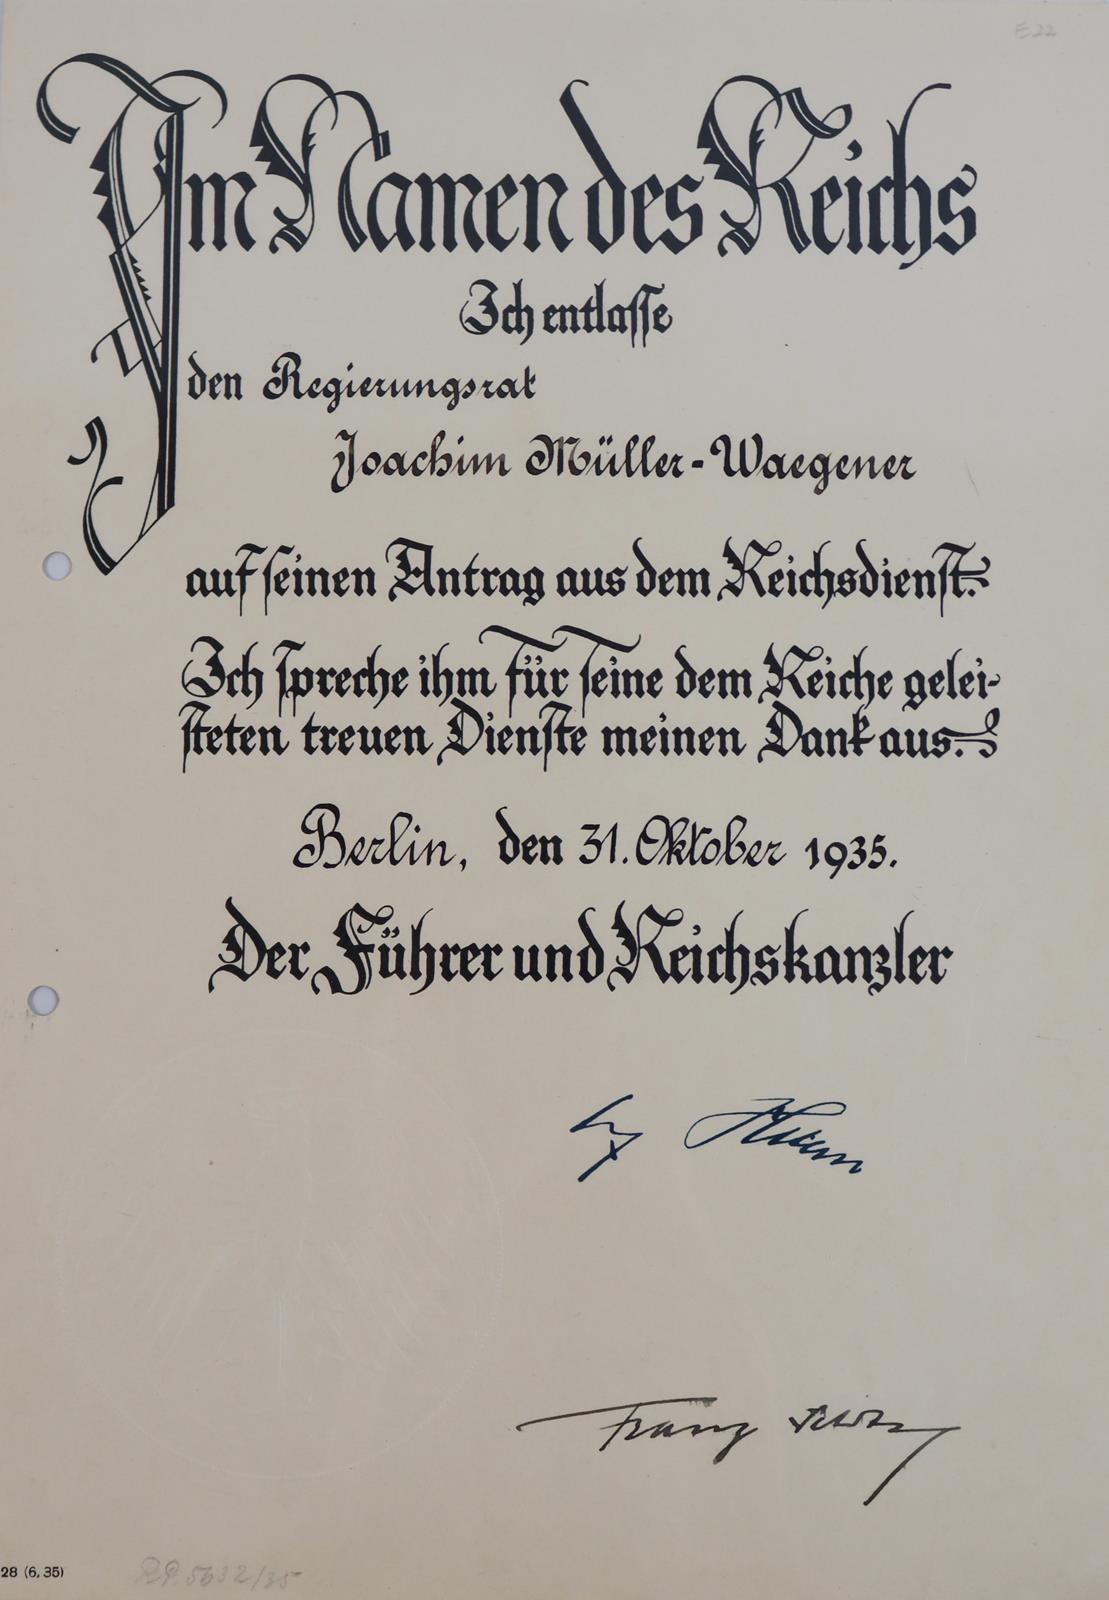 E22
Im Namen des Reichs
Ich entlasse
den Regierungsrat
Joachim Müller-Waegener
auf seinen Antrag aus dem Reichsdienst.
Ich spreche ihm für seine dem Reiche gelei-
steten treuen Dienste meinen Dank aus.
Berlin, den 31. Oktober 1935.
Der Führer und Reichskanzler
Franz
28 (6.35)
RP. 5632/35